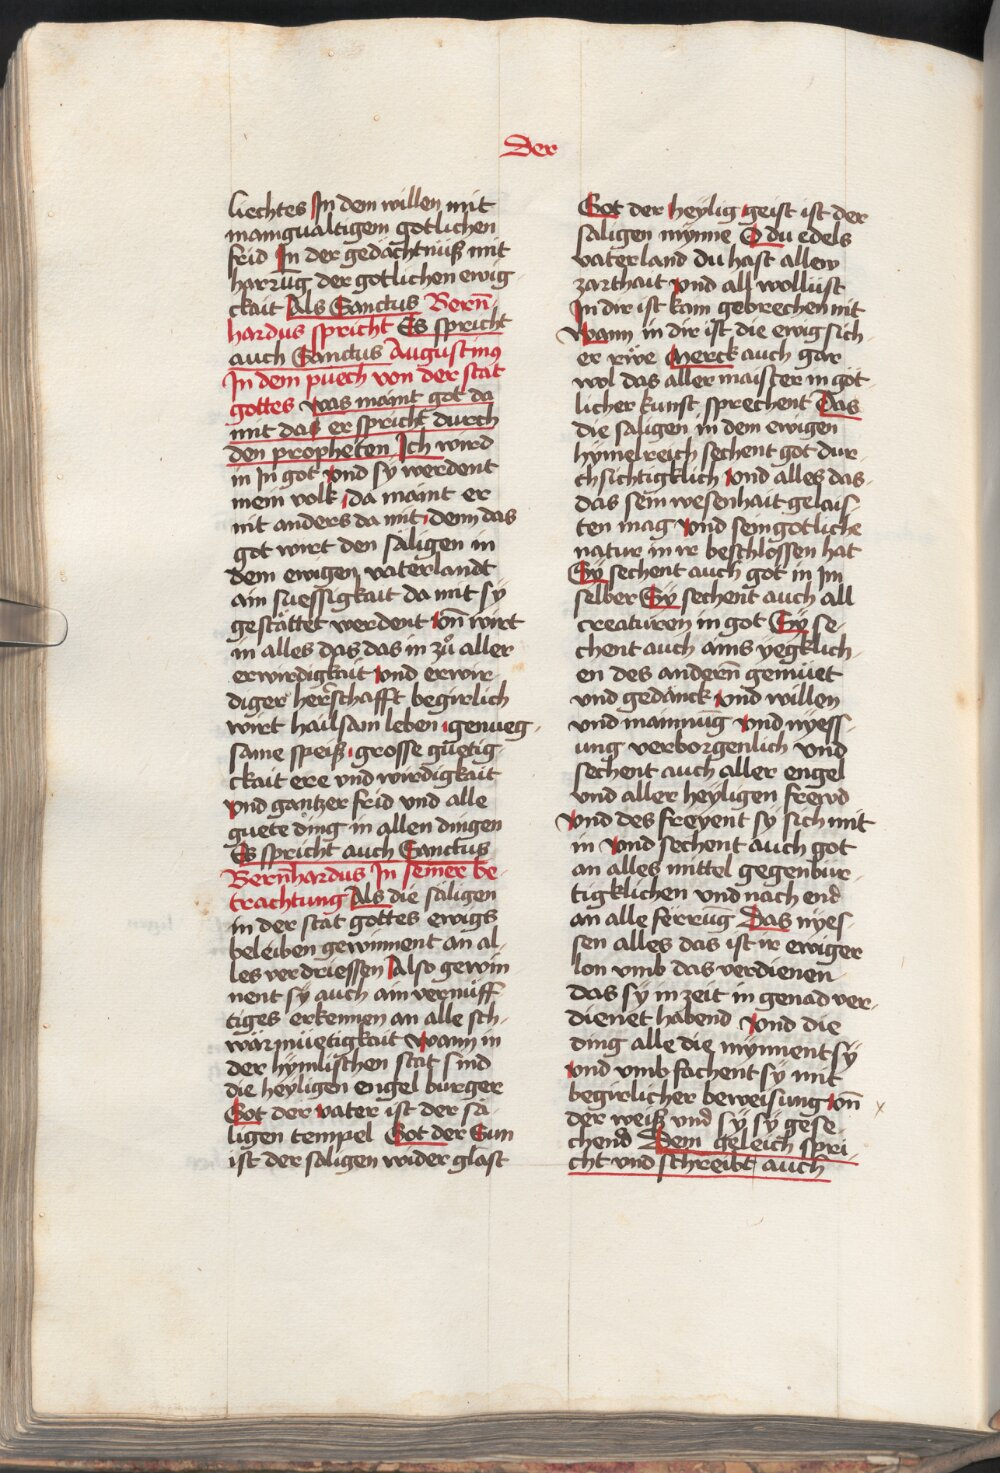 Der
liechtes In dem willen mit
manigualtigem gotlichen
frid In der gedächtnüß mit
harrūg der gotlichen ewig
ckait Als Sanctus Bern̄
hardus spricht Es spricht
auch Sanctus Augustinus
In dem puech von der stat
gottes was maint got da
mit das er spricht durch
den propheten Ich wird
in In got vnd sy werdent
mein volk da maint er
nit anders da mit denn das
got wirt den säligen in
dem ewigen vaterlandt
ain suessigkait da mit sy
gestättet werdent vn̄ wirt
in alles das das in zů aller
erwirdigkait vnd erwir
diger herschafft begirlich
wirt hailsam leben genueg
same speiß grosse guetig
ckait ere vnd wirdigkait
vnd gantzer frid vnd alle
guete ding in allen dingen
Es spricht auch Sanctus
Bern̄hardus In seiner be
trachtung Als die säligen
in der stat gottes ewigs
beleiben gewinnent an al
les verdriessen Also gewin
nent sy auch ain vernüff
tiges erkennen an alle sch
wärmüetigkait wann in
der hymlischen stat sind
die heyligen engel burger
Got der vater ist der sä
ligen tempel Got der Sun
ist der säligen wider glast
Got der heylig geist ist der
säligen mynne O du edels
vaterland du hast allen
zarthait vnd all wollüst
In dir ist kain gebrechen nit
Wann in dir ist die ewig sich
er rwe Merck auch gar
wol das aller maister in göt
licher kunst sprechent Das
die säligen in dem ewigen
hymelreich sechent got dur
chsichtigklich vnd alles das
das sein wesenhait gelais
ten mag vnd sein gotliche
natur in ir beschlossen hat
Sy sechent auch got in Im
selber Sy sechent auch all
creaturen in got Sy se
chent auch ains yegklich
en des andern̄ gemüet
vnd gedänck vnd willen
vnd mainnūg vnd nyess
ung verborgenlich vnd
sechent auch aller engel
vnd aller heyligen frewd
vnd des freyent sy sich mit
in vnd sechent auch got
an alles mittel gegenbür
tigklichen vnd nach end
an alle ferrūg Das nyes
sen alles das ist ir ewiger
lon vmb das verdienen
das sy in zeit in genad ver
dienet habend vnd die
ding alle die mynnent sy
vnd vmb fachent sy mit
begirlicher beweisung vn̄
der weiß vnd sy sy gese
chend Dem geleich spri
cht vnd schreibt auch